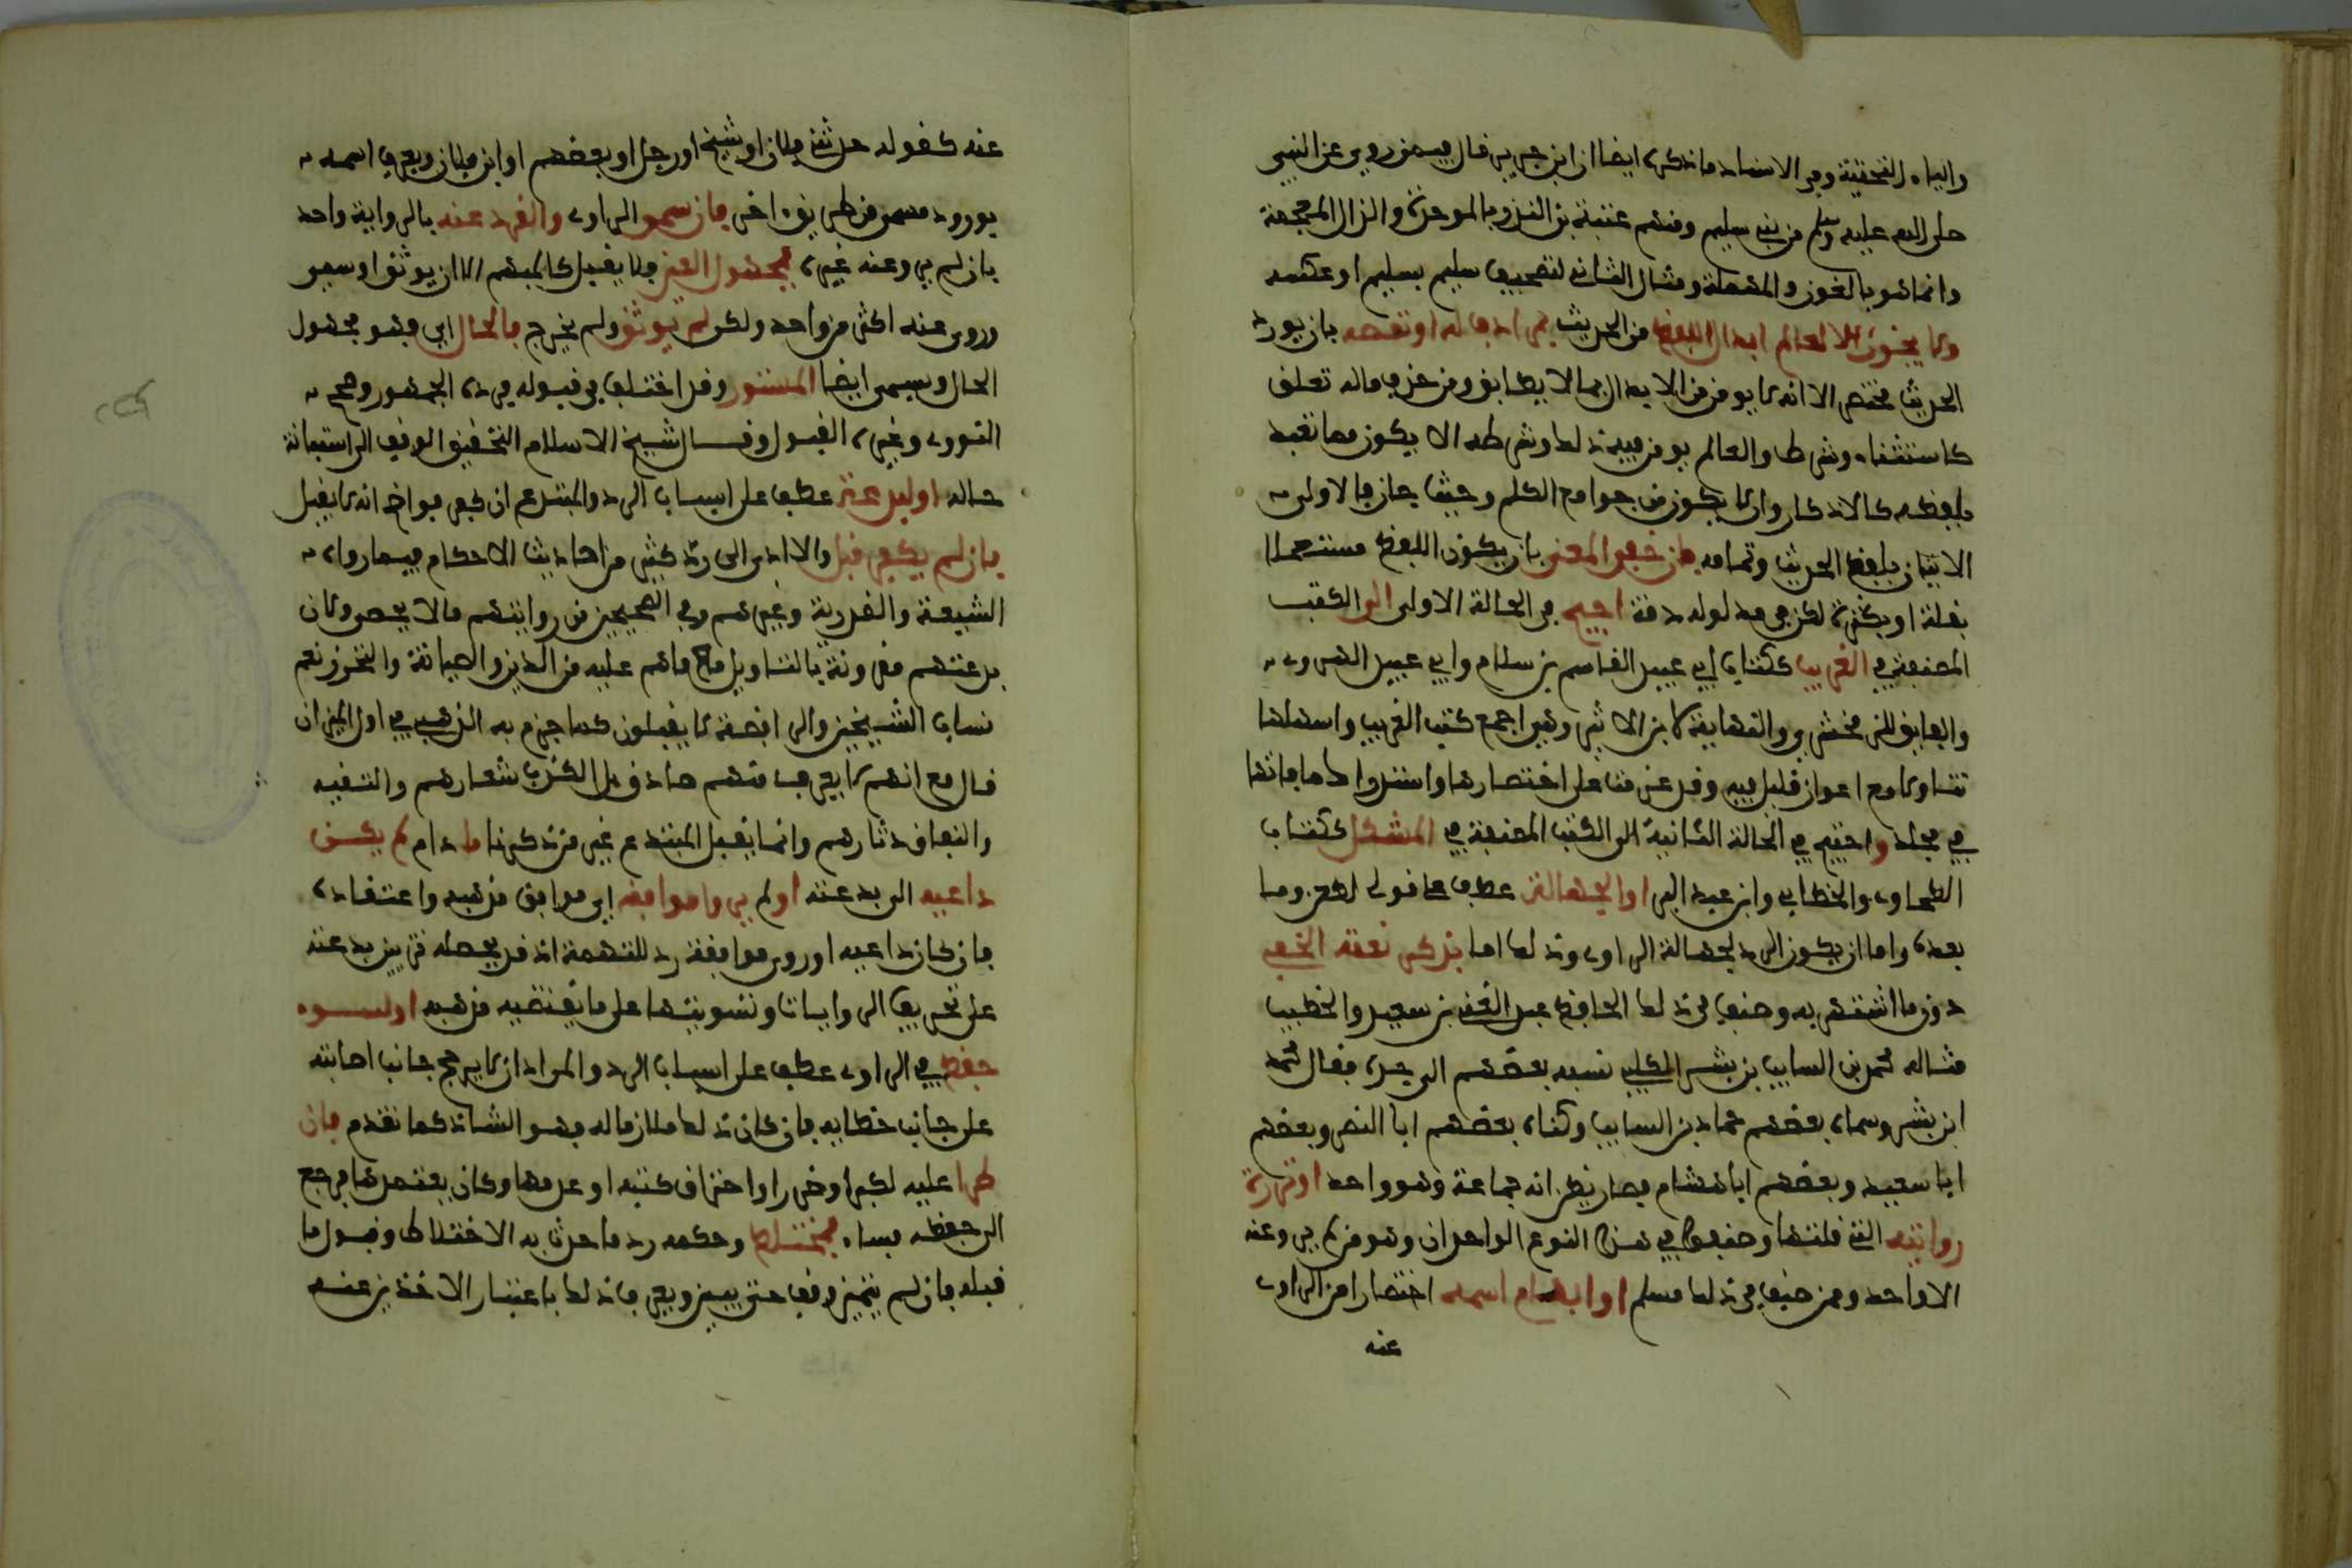 والياء التحتية وفي الاسناد ما ذكره ايضا ان ابن جرير قال فيمن روى عن النبي
صلى الله عليه وسلم من بني سليم ومنهم عتبة بن البذر بالموحدة والذال المعجمة
وانما هو بالنون والمهملة ومثال الثاني تصحيف سليم بسليم او عكسه
ولا يجوز الا لعالم ابدال اللفظ من الحديث بمرادف له او نقصه بان يورد
الحديث مختصرا لانه لا يومن من الابدال بما لا يطابق ومن حذف ما له تعلق
كاستثناء وشرط والعالم يومن فيه ذلك وشرطه الا يكون مما تعبد
بلفظه كالاذكار والا يكون من جوامع الكلم وحيث جاز فالاولى
الاتيان بلفظ الحديث وتمامه فان خفي المعنى بان يكون اللفظ مستعملا
بقلة او بكثرة لكن في مدلوله دقة احتيج في الحالة الاولى الى الكتب
المصنفة في الغريب ككتاب ابي عبيد القاسم بن سلام وابي عبيد الهروي
والفايق للزمخشري والنهاية لابن الاثير وهو اجمع كتب الغريب واسهلها
تناولا مع اعواز قليل فيه وقد عزمنا على اختصارها واستدراك ما فاتها
في مجلد واحتيج في الحالة الثانية الى الكتب المصنفة في المشكل ككتاب
الطحاوي والخطابي وابن عبد البر او لجهالة عطف على قولي لطعن وما
بعده واما ان يكون الرد لجهالة الراوي وذلك اما بذكر نعته الخفي
دون ما اشتهر به وصنف في ذلك الحافظ عبد الغني بن سعيد والخطيب
مثاله محمد بن السايب بن بشر الكلبي نسبه بعضهم الى جده فقال محمد
ابن بشر وسماه بعضهم حماد بن السايب وكناه بعضهم ابا النضر وبعضهم
ابا سعيد وبعضهم ابا هشام فصار يظن انه جماعة وهو واحد او ندرة
روايته التي قلتها وصنفوا في هذا النوع الواحدان وهو من لم يرو عنه
الا واحد وممن صنف في ذلك مسلم او ابهام اسمه اختصارا من الراوي
عنه
عنه كقوله حدثني فلان او شيخ او رجل او بعضهم او ابن فلان ويعرف اسمه
بوروده مسمى من طريق اخرى فان سمي الراوي وانفرد عنه بالرواية واحد
بان لم يرو عنه غيره فمجهول العين فلا يقبل كالمبهم الا ان يوثق او سمي
وروى عنه اكثر من واحد ولكن لم يوثق ولم يجرح فالحال اي فهو مجهول
الحال ويسمى ايضا المستور وقد اختلف في قبوله فرده الجمهور وصحح
النووي وغيره القبول وقال شيخ الاسلام التحقيق الوقف الى استبانة
حاله او لبدعة عطف على اسباب الرد والمبتدع ان كفر فواضح انه لا يقبل
فان لم يكفر قبل والا ادى الى رد كثير من احاديث الاحكام فيما رواه
الشيعة والقدرية وغيرهم وفي الصحيحين من روايتهم ما لا يحصى ولان
بدعتهم مقرونة بالتاويل مع ما هم عليه من الدين والصيانة والتحرز نعم
ساب الشيخين والرافضة لا يقبلون كما جزم به الذهبي في اول الميزان
قال مع انهم لا يعرف منهم صادق بل الكذب شعارهم والتقية
والنفاق دثارهم وانما يقبل المبتدع غير من ذكرنا ما دام لم يكن
داعية الى بدعته او لم يرو موافقه اي موافق مذهبه واعتقاده
فان كان داعية او روى موافقه رد للتهمة اذ قد يحمله تزيين بدعته
على تحريف الروايات وتسويتها على ما يقتضيه مذهبه او لسوء
حفظ في الراوي عطف على اسباب الرد والمراد ان لا يرجح جانب اصابته
على جانب خطايه فان كان ذلك ملازما له فهو الشاذ كما تقدم فان
طرا عليه لكبر او ضرر او احتراق كتبه او عدمها وكان يعتمدها فرجع
الى حفظه فساء فمختلط وحكمه رد ما حدث به الاختلاط وقبول ما
قبله فان لم يتميز وقف حتى يتبين ويعرف ذلك باعتبار الاخذين عنه